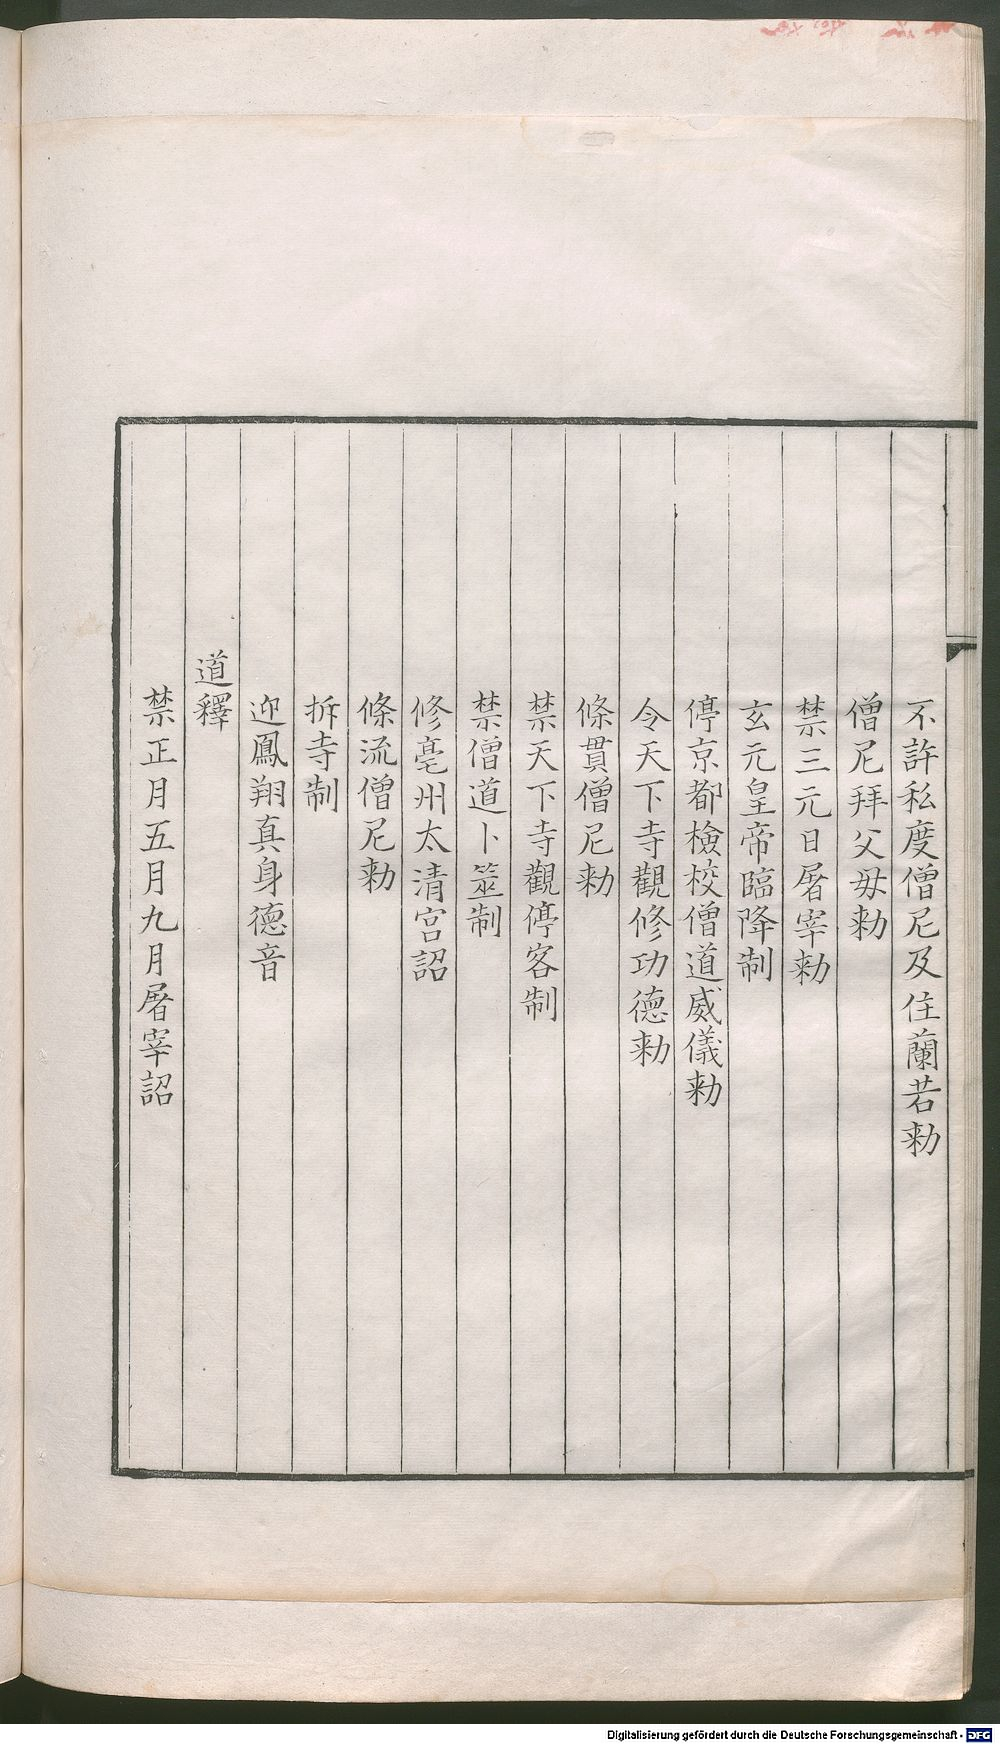 不許私度僧尼及住蘭若勑
僧尼拜父母勑
禁三元日屠宰勑
玄元皇帝臨降制
停京都檢校僧道威儀勑
令天下寺觀修功德勑
條貫僧尼勑
禁天下寺觀停客制
禁僧道卜筮制
修亳州太清宮詔
條流僧尼勑
拆寺制
迎鳳翔真身德音
道釋
禁正月五月九月屠宰詔
Digitalisierung gefördert durch die Deutsche Forschungsgemeinschaft - DFG